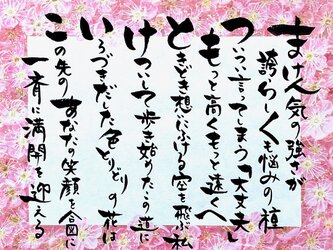 まけん気の強さが
誇らしくも悩みの種
ついつい言ってしまう「大丈夫」
もっと高くもっと遠くへ
ときどき想いにふける空を飛ぶ私
けついして歩き始めたこの道に
いろづきだした色とりどりの花は
この先のあなたの笑顔を合図に
一斉に満開を迎える